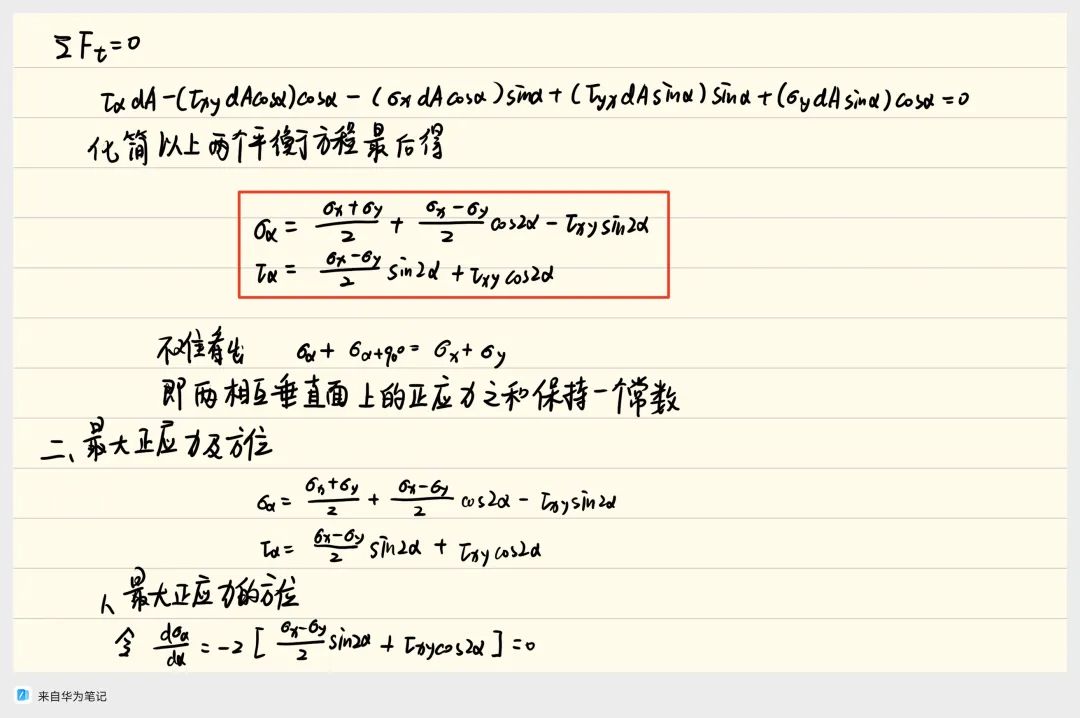 ΣFt=0
τα dA-(τxy dAcosα)cosα-(σx dAcosα)sinα+(τyx dAsinα)sinα+(σy dAsinα)cosα=0
化简以上两个平衡方程最后得
σα= (σx+σy)/2 + (σx-σy)/2 cos2α-τxy sin2α
τα= (σx-σy)/2 sin2α+τxy cos2α
不难看出 σα+σα+90°=σx+σy
即两相互垂直面上的正应力之和保持一个常数
二、最大正应力及方位
σα= (σx+σy)/2 + (σx-σy)/2 cos2α-τxy sin2α
τα= (σx-σy)/2 sin2α+τxy cos2α
1、最大正应力的方位
令 dσα/dα=-2[(σx-σy)/2 sin2α+τxy cos2α]=0
来自华为笔记